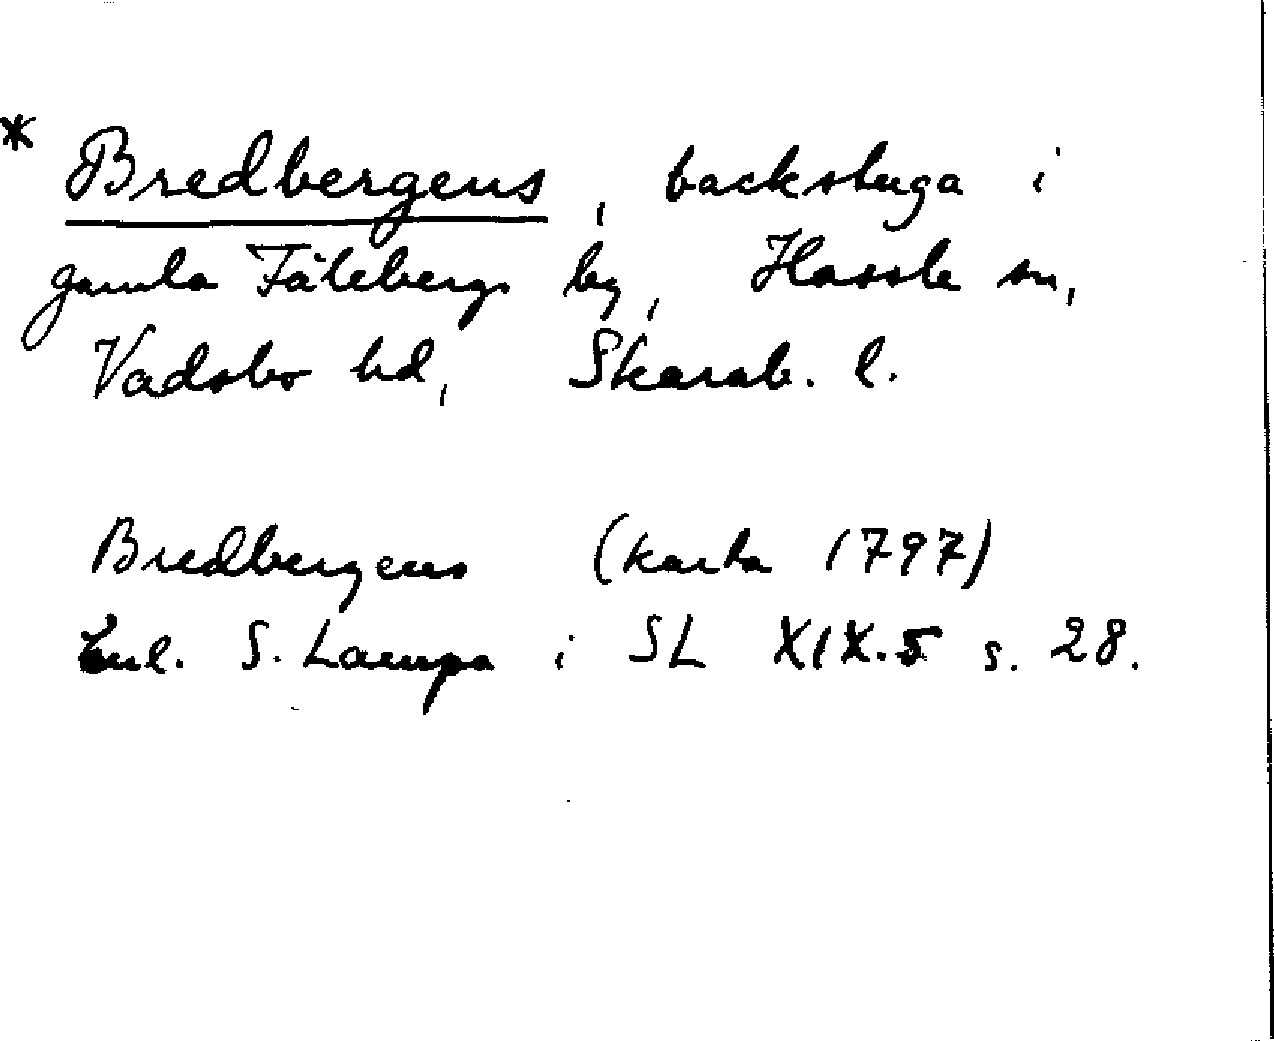 * Bredbergens, backstuga i
gamla Fäleberg by, Hassle sn,
Vadsbo hd, Skarab. l.
Bredbergens (karta 1797)
Enl. S. Lampa i SL XIX.5 s. 28.